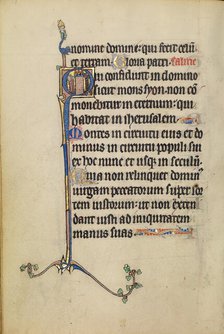 nomine domini: qui fecit celū
et terram. Gloria patri.
Qui confidunt in domino
sicut mons syon: non co
mouebitur in eternum: qui
habitat in iherusalem.
Montes in circuitu eius et do
minus in circuitu populi su
i ex hoc nunc et usq; in seculū.
Quia non relinquet dominus
uirgam peccatorum super sor
tem iustorum: ut non exten
dant iusti ad iniquitatem
manus suas.